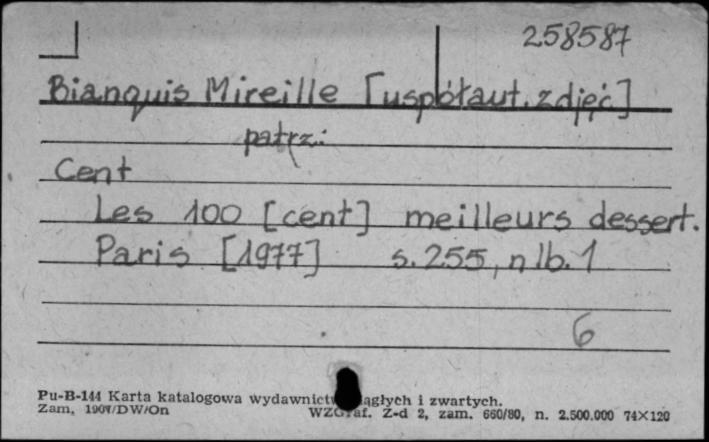 258587
Bianquis Mireille [uspółaut. zdjęć]
patrz:
Cent
Les 100 [cent] meilleurs dessert.
Paris [1977] s. 255, nlb. 1
6
Pu-B-144 Karta katalogowa wydawnictw ciągłych i zwartych.
Zam, /DW/On WZGraf. Z-d 2, zam. 660/80, n. 2.500.000 74×120